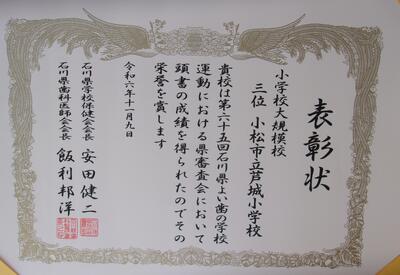 表彰状
小学校大規模校
三位 小松市立芦城小学校
貴校は第六十五回石川県よい歯の学校
運動における県審査会において
頭書の成績を得られたのでその
栄誉を賞します
令和六年十一月九日
石川県学校保健会会長 安田健二
石川県歯科医師会会長 飯利邦洋